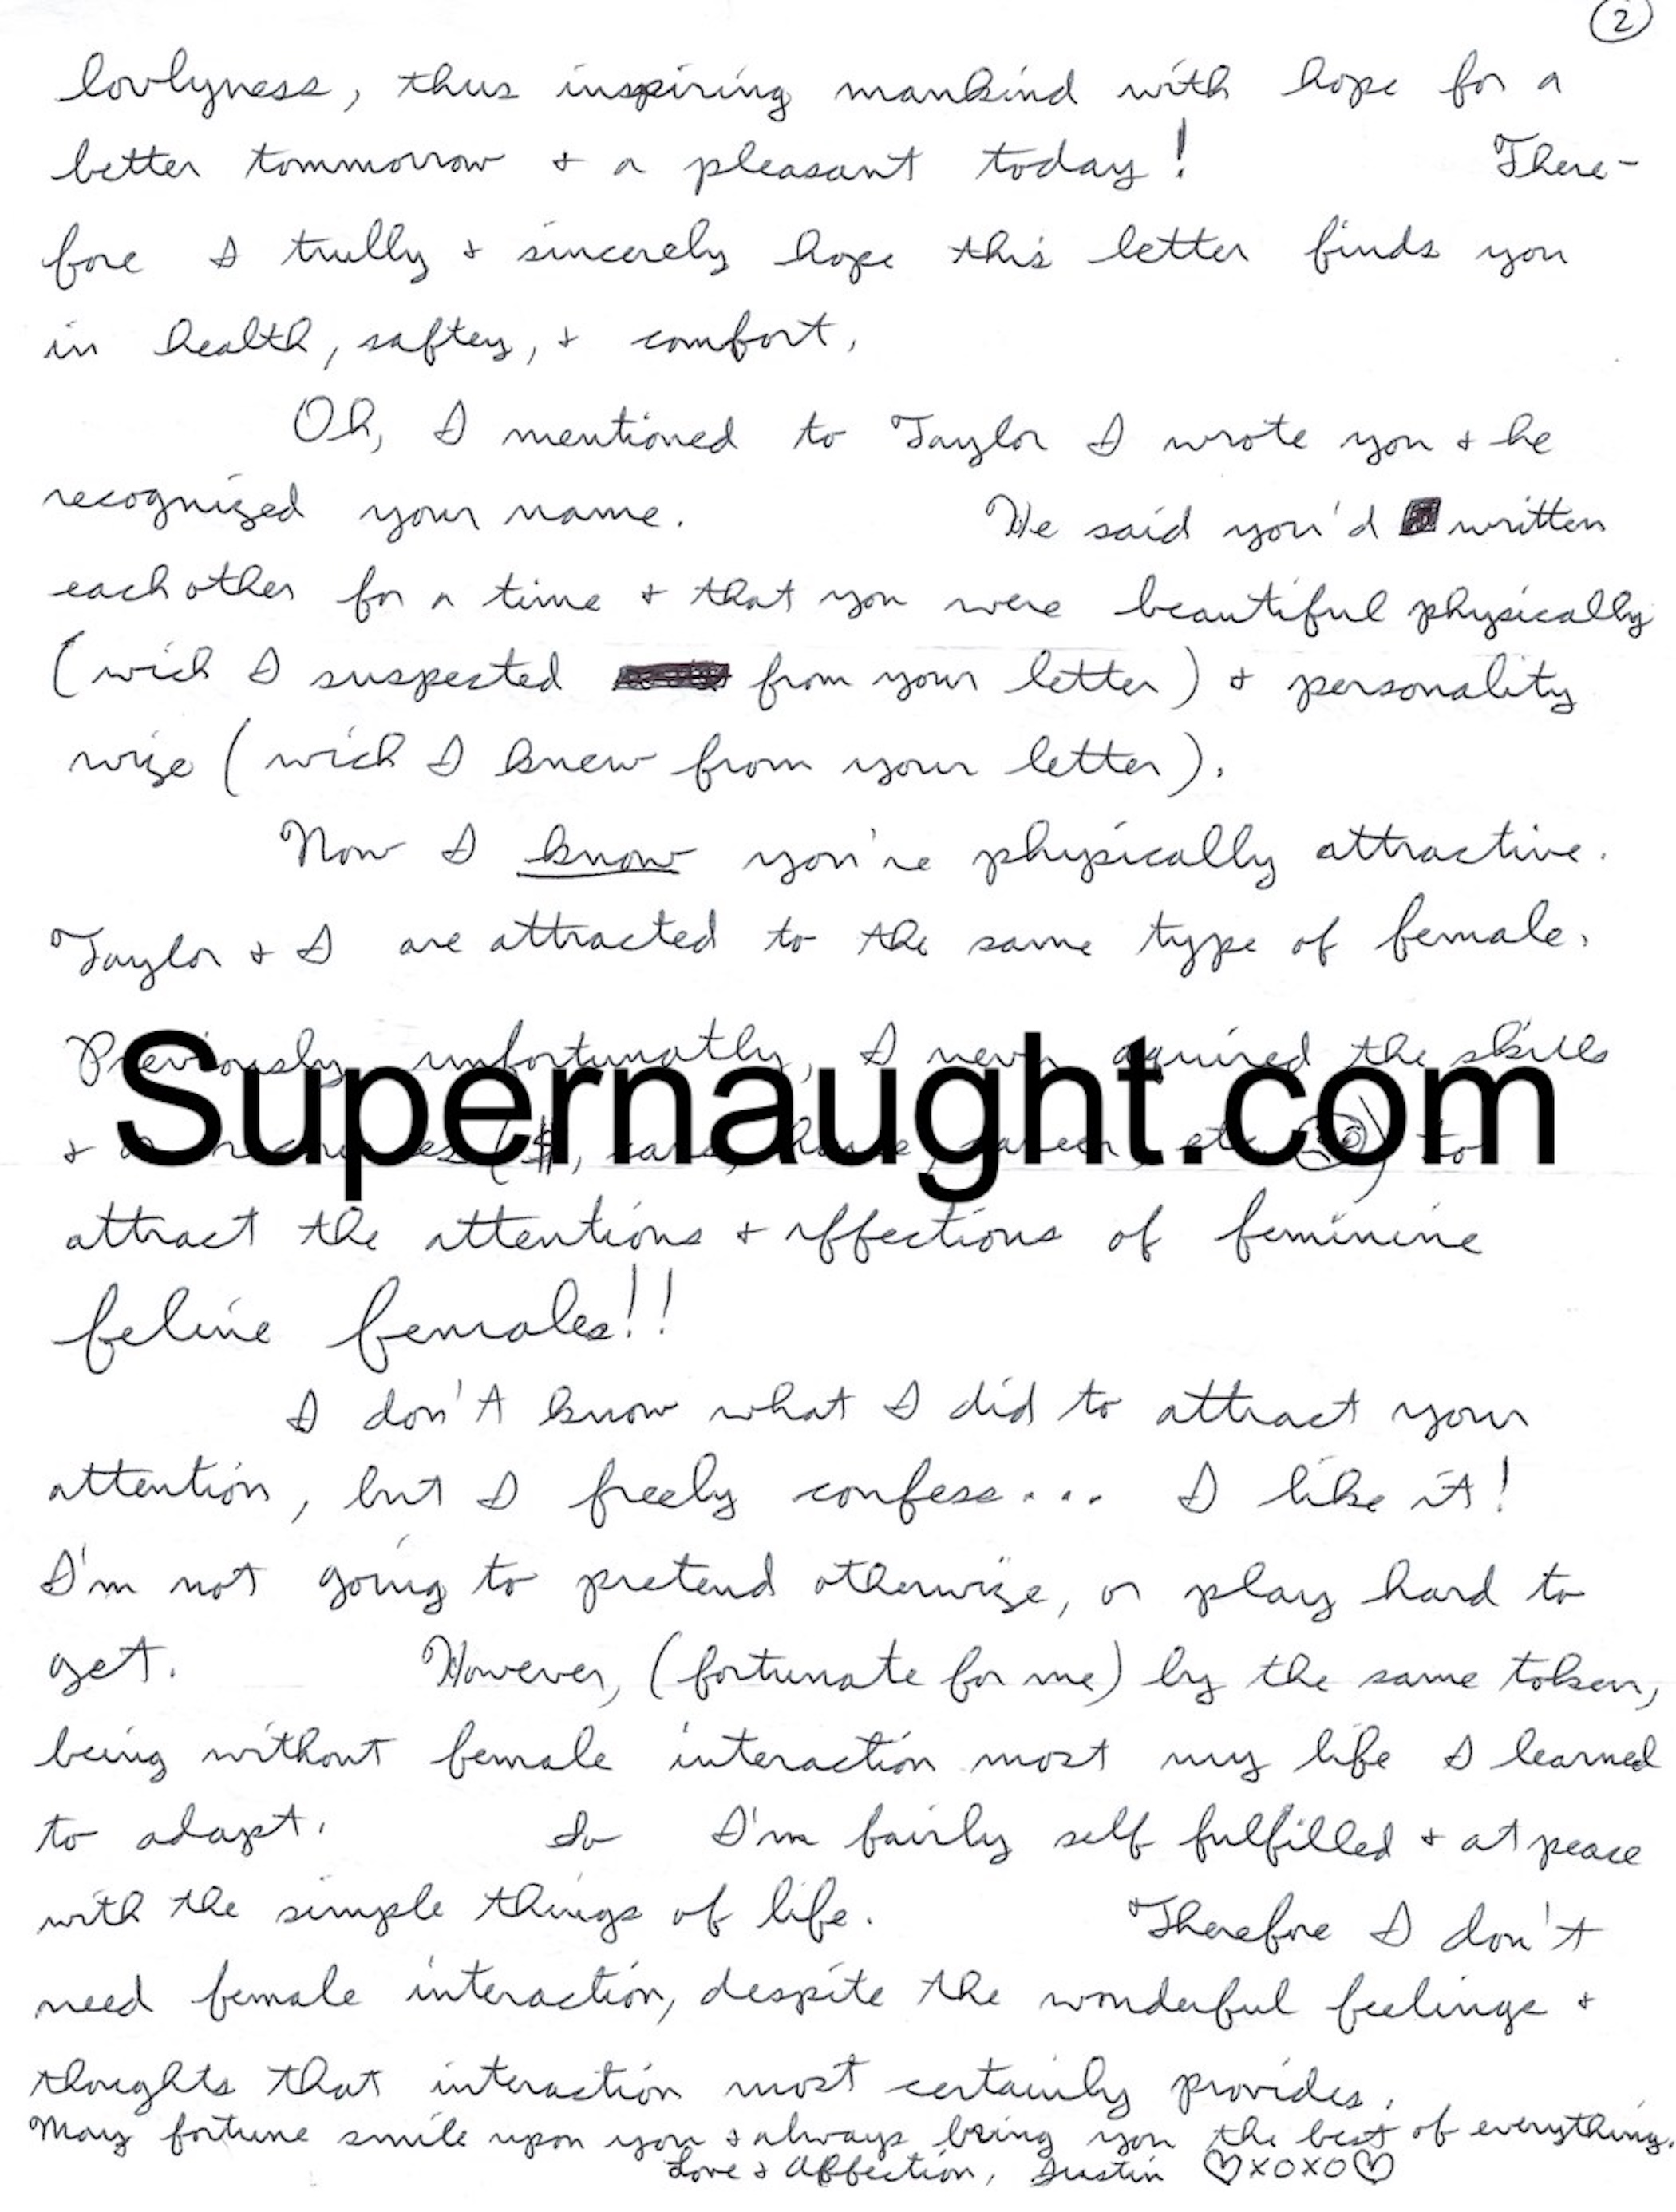 2
lovlyness, thus inspiring mankind with hope for a
better tommorrow & a pleasant today! There-
fore I trully & sincerely hope this letter finds you
in health, saftey, & comfort.
Oh, I mentioned to Taylor I wrote you & he
recognized your name. He said you'd written
each other for a time & that you were beautiful physically
(wich I suspected from your letter) & personality
wize (wich I knew from your letter).
Now I know you're physically attractive.
Taylor & I are attracted to the same type of female.
Previously, unfortunatly, I never aquired the skills
Supernaught.com
& ($, to
attract the attentions & affections of feminine
feline females!!
I don't know what I did to attract your
attention, but I freely confess... I like it!
I'm not going to pretend otherwize, or play hard to
get. However, (fortunate for me) by the same token,
being without female interaction most my life I learned
to adapt. So I'm fairly self fulfilled & at peace
with the simple things of life. Therefore I don't
need female interaction, despite the wonderful feelings &
thoughts that interaction most certainly provides.
May fortune smile upon you & always bring you the best of everything.
Love & Affection, Justin ♡XOXO♡